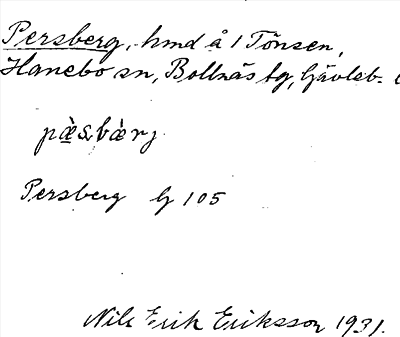 Persberg, hmd å 1 Tönsen,
Hanebo sn, Bollnäs tg, Gävleb.
pæ̀s.bær̀j
Persberg G 105
Nils Erik Eriksson 1931.